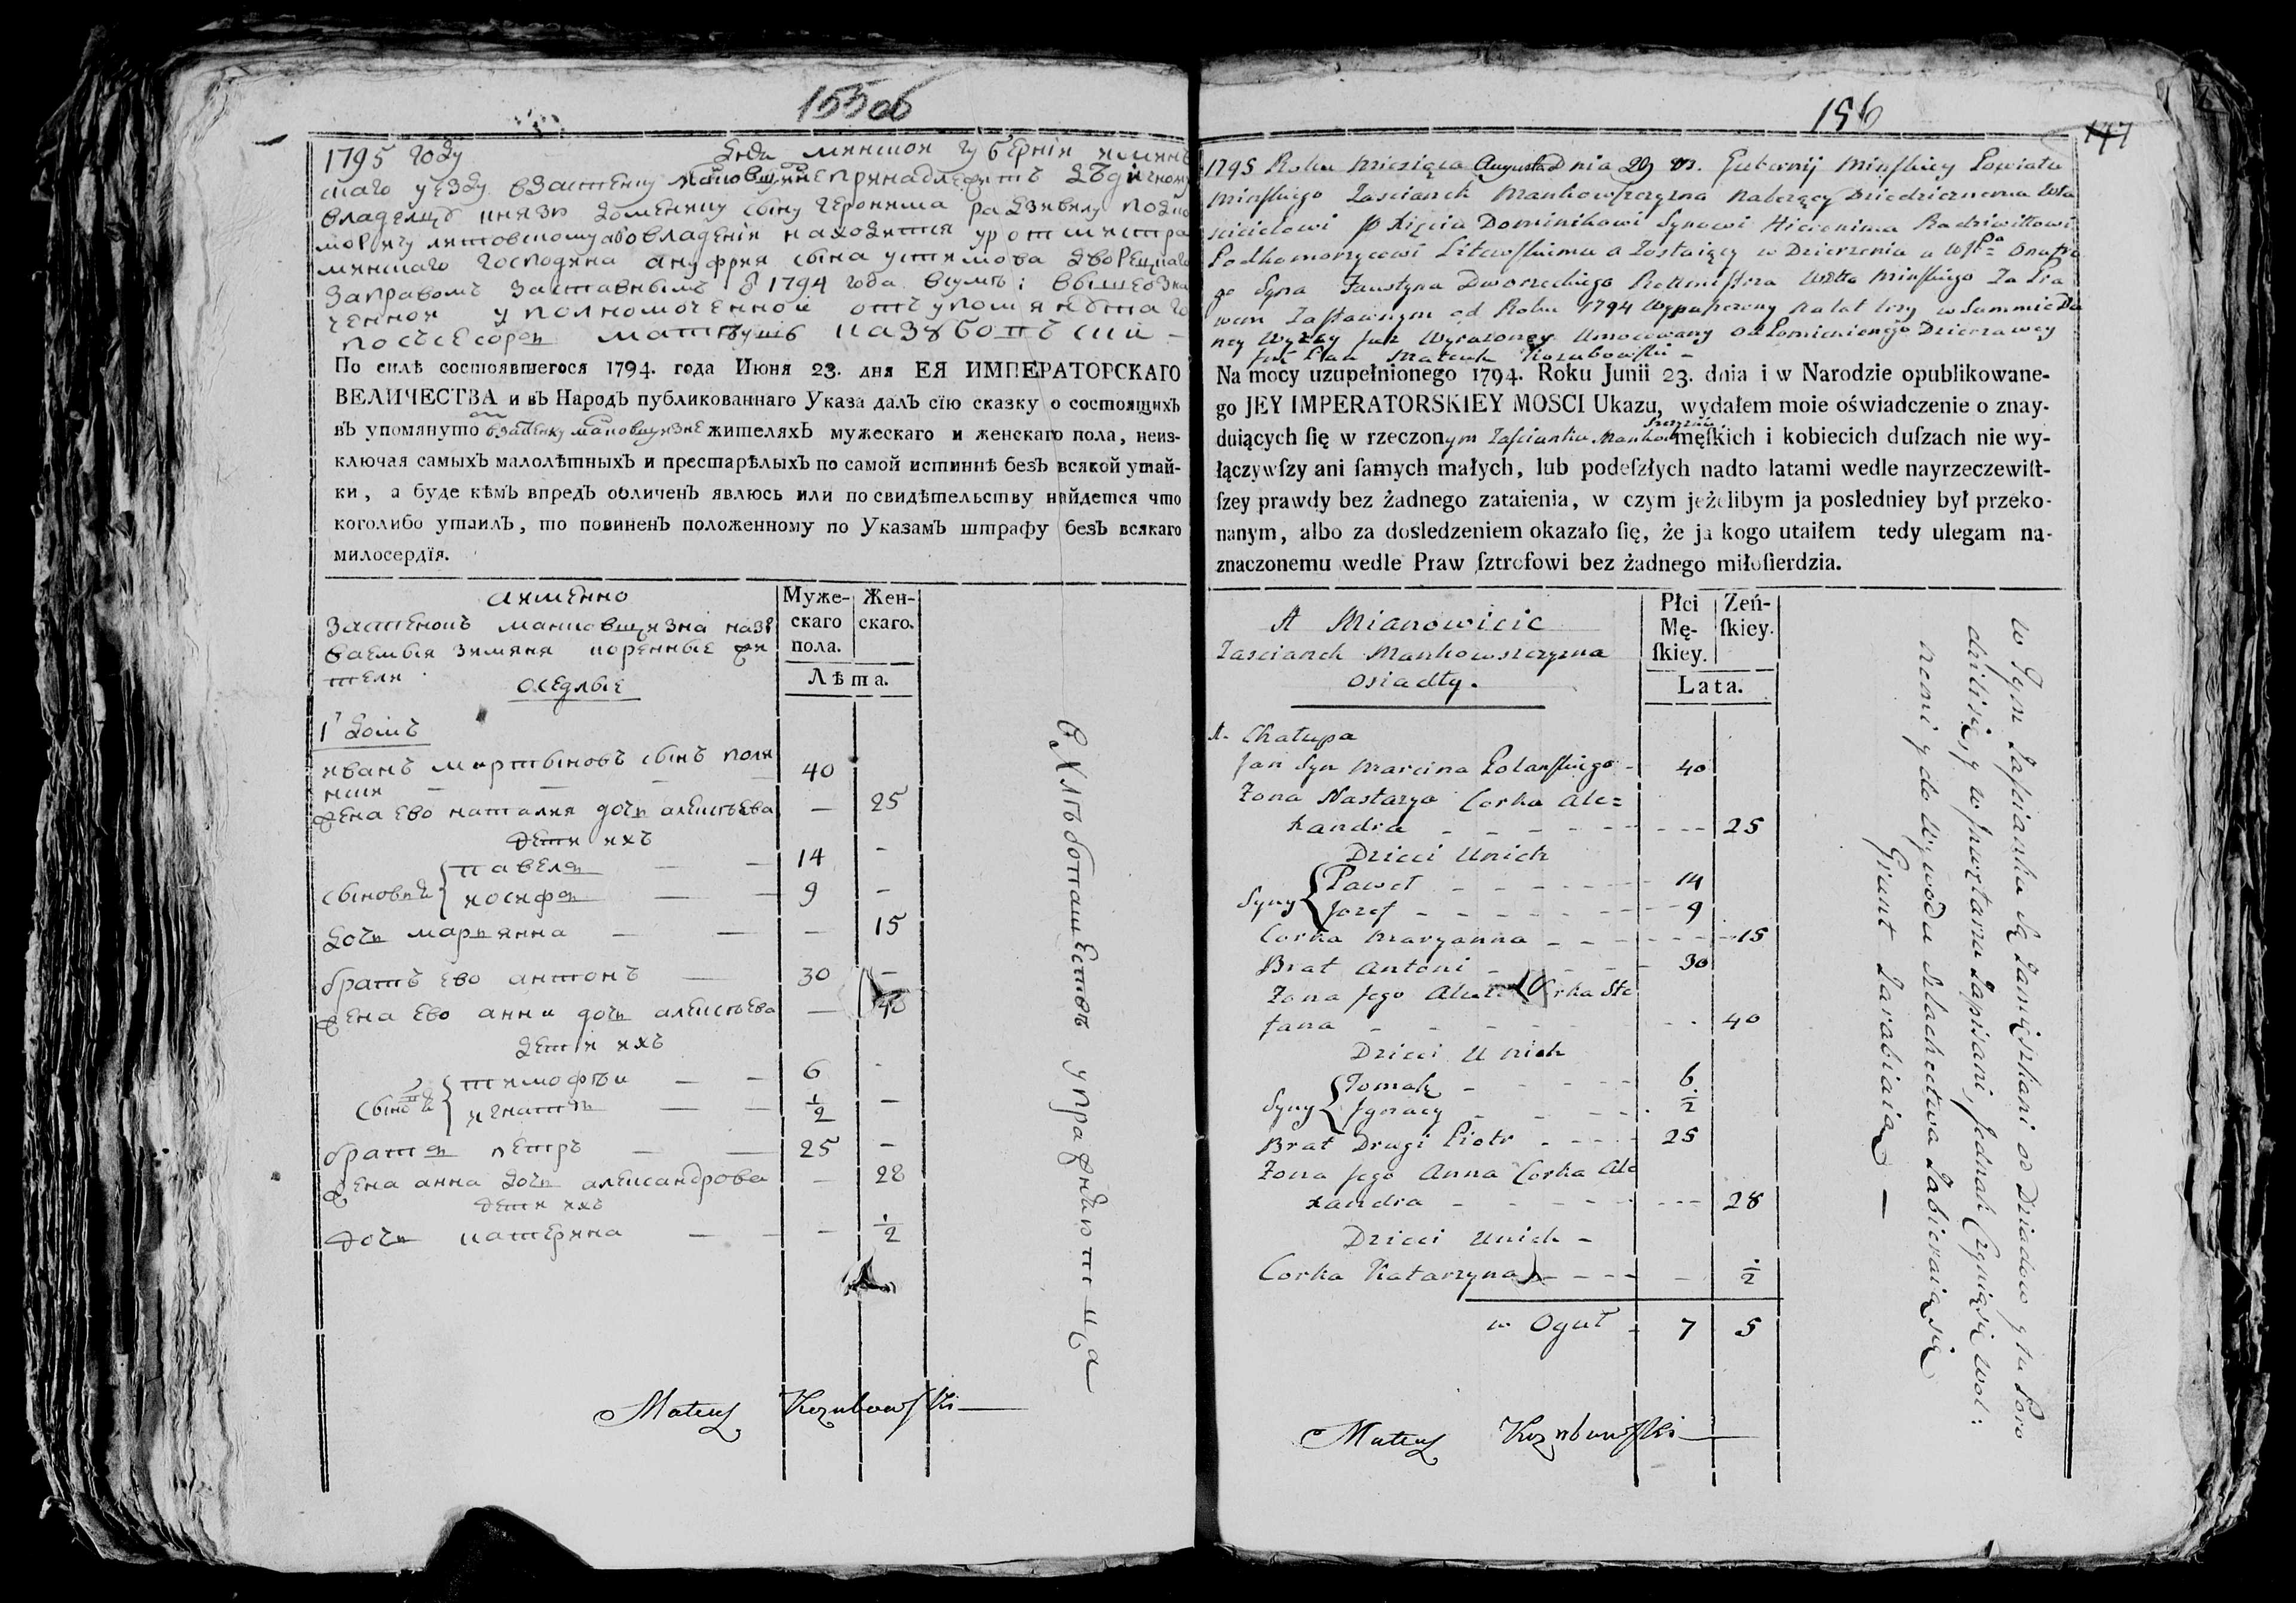 155об
1795 году дня минской губернїи минъ
скаго уезду в застенку принадлежитъ дѣдичному
владелцу князю доменику сыну геронима радзивилу подко
морему литовскому а во владенїи находится у ротмистра
минскаго господина ануфрия сына устинова дворецкаго
заправомъ заставнымъ с 1794 года
ченной уполномоченной отъ упомянутаго
посъсесора матеушъ казубовъскій
По силѣ состоявшегося 1794. года Июня 23. дня ЕЯ ИМПЕРАТОРСКАГО
ВЕЛИЧЕСТВА и въ Народъ публикованнаго Указа далъ сїю сказку о состоящихъ
въ упомянутомъ жителяхъ мужескаго и женскаго пола, неиз-
ключая самыхъ малолѣтныхъ и престарѣлыхъ по самой истиннѣ безъ всякой утай-
ки, а буде кѣмъ впредъ обличенъ явлюсь или по свидѣтельству найдется что
коголибо утаилъ, то повиненъ положенному по Указамъ штрафу безъ всякаго
милосердїя.
а имЕнно
Застенокъ манковщизна назы
ваемыя земяня коренные жи
тели
оседлые
Муже-
скаго
пола.
Жен-
скаго.
Лѣта.
1 домъ
иванъ мартыновъ сынъ поля
нски — — 40
жена ево наталия дочь алексѣева — 25
дети ихъ
сыновья { павелъ — — 14 -
иосифъ — — 9 –
дочь марьянна — — — 15
братъ ево антонъ — 30 —
жена ево анна дочь алексѣева — 40
дети ихъ
сыновья { тимофѣй — – 6 -
игнатъ — — 1/2 –
братъ петръ — — 25 –
жена анна дочь александрова — 28
дети ихъ
дочь катерина — — – 1/2
Хлѣбопашествѣ упражняютца
Mateusz Kozubowski
156
147
1795 Roku Miesiąca Augusta Dnia 29 v.s. Gubernij Minskiey Powiatu
Minskiego Zascianek Mankowszczyzna Należący Dziedzicznemu Wła
scicielowi Xięcia Dominikowi Synowi Hieronima Radziwiłłowi
Podkomorzycowi Litewskiemu a Zostaiący w Dzierżeniu u WJPa Onufre
go Syna Faustyna Dworzeckiego Rottmistrza Wdztwa Minskiego Za Pra
wem Zastawnym od Roku 1794 Wypuszczony na lat trzy w Summie Da
ney Wyżey Jak Wyrażoney Umocowany od Pomienionego Dzierżawcy
Jmć Pan Mateusz Kozubowski –
Na mocy uzupełnionego 1794. Roku Junii 23. dnia i w Narodzie opublikowane-
go JEY IMPERATORSKIEY MOSCI Ukazu, wydałem moie oświadczenie o znay-
duiących ſię w rzeczonym Zascianku Mankowszczyznie męſkich i kobiecich duſzach nie wy-
łączywſzy ani ſamych małych, lub podeſzłych nadto latami wedle nayrzeczewiſt-
ſzey prawdy bez żadnego zataienia, w czym jeżelibym ja posledniey był przeko-
nanym, albo za dosledzeniem okazało ſię, że ja kogo utaiłem tedy ulegam na-
znaczonemu wedle Praw ſztrofowi bez żadnego miłoſierdzia.
A Mianowicie
Zascianek Mankowszczyzna
Osiadły.
Płci
Mę-
ſkiey.
Zeń-
ſkiey.
Lata.
1. Chałupa
Jan Syn Marcina Polanskiego - 40
Zona Nastazya Corka Ale=
xandra - - - - 25
Dzieci Unich
Syny { Paweł - - - - 14
Jozef - - - - 9
Corka Maryanna - - - 15
Brat Antoni - - - 30
Zona Jego Corka Ste
fana - - - - 40
Dzieci Unich
Syny { Tomasz - - - - 6
Jgnacy - - - - 1/2
Brat Drugi Piotr - - - 25
Zona Jego Anna Corka Ale
xandra - - - - 28
Dzieci Unich -
Corka Katarzyna - - - - 1/2
w Oguł - 7 5
W Tym Zascianku są Zamięszkani od Dziadow y tu Poro
dzili się y w Inwętarzu Zapisani, Jednak Czynią się Wol:
nemi y do Wywodu Szlachectwa Zabieraią się
Grunt Zarabiaią —
Mateusz Kozubowski